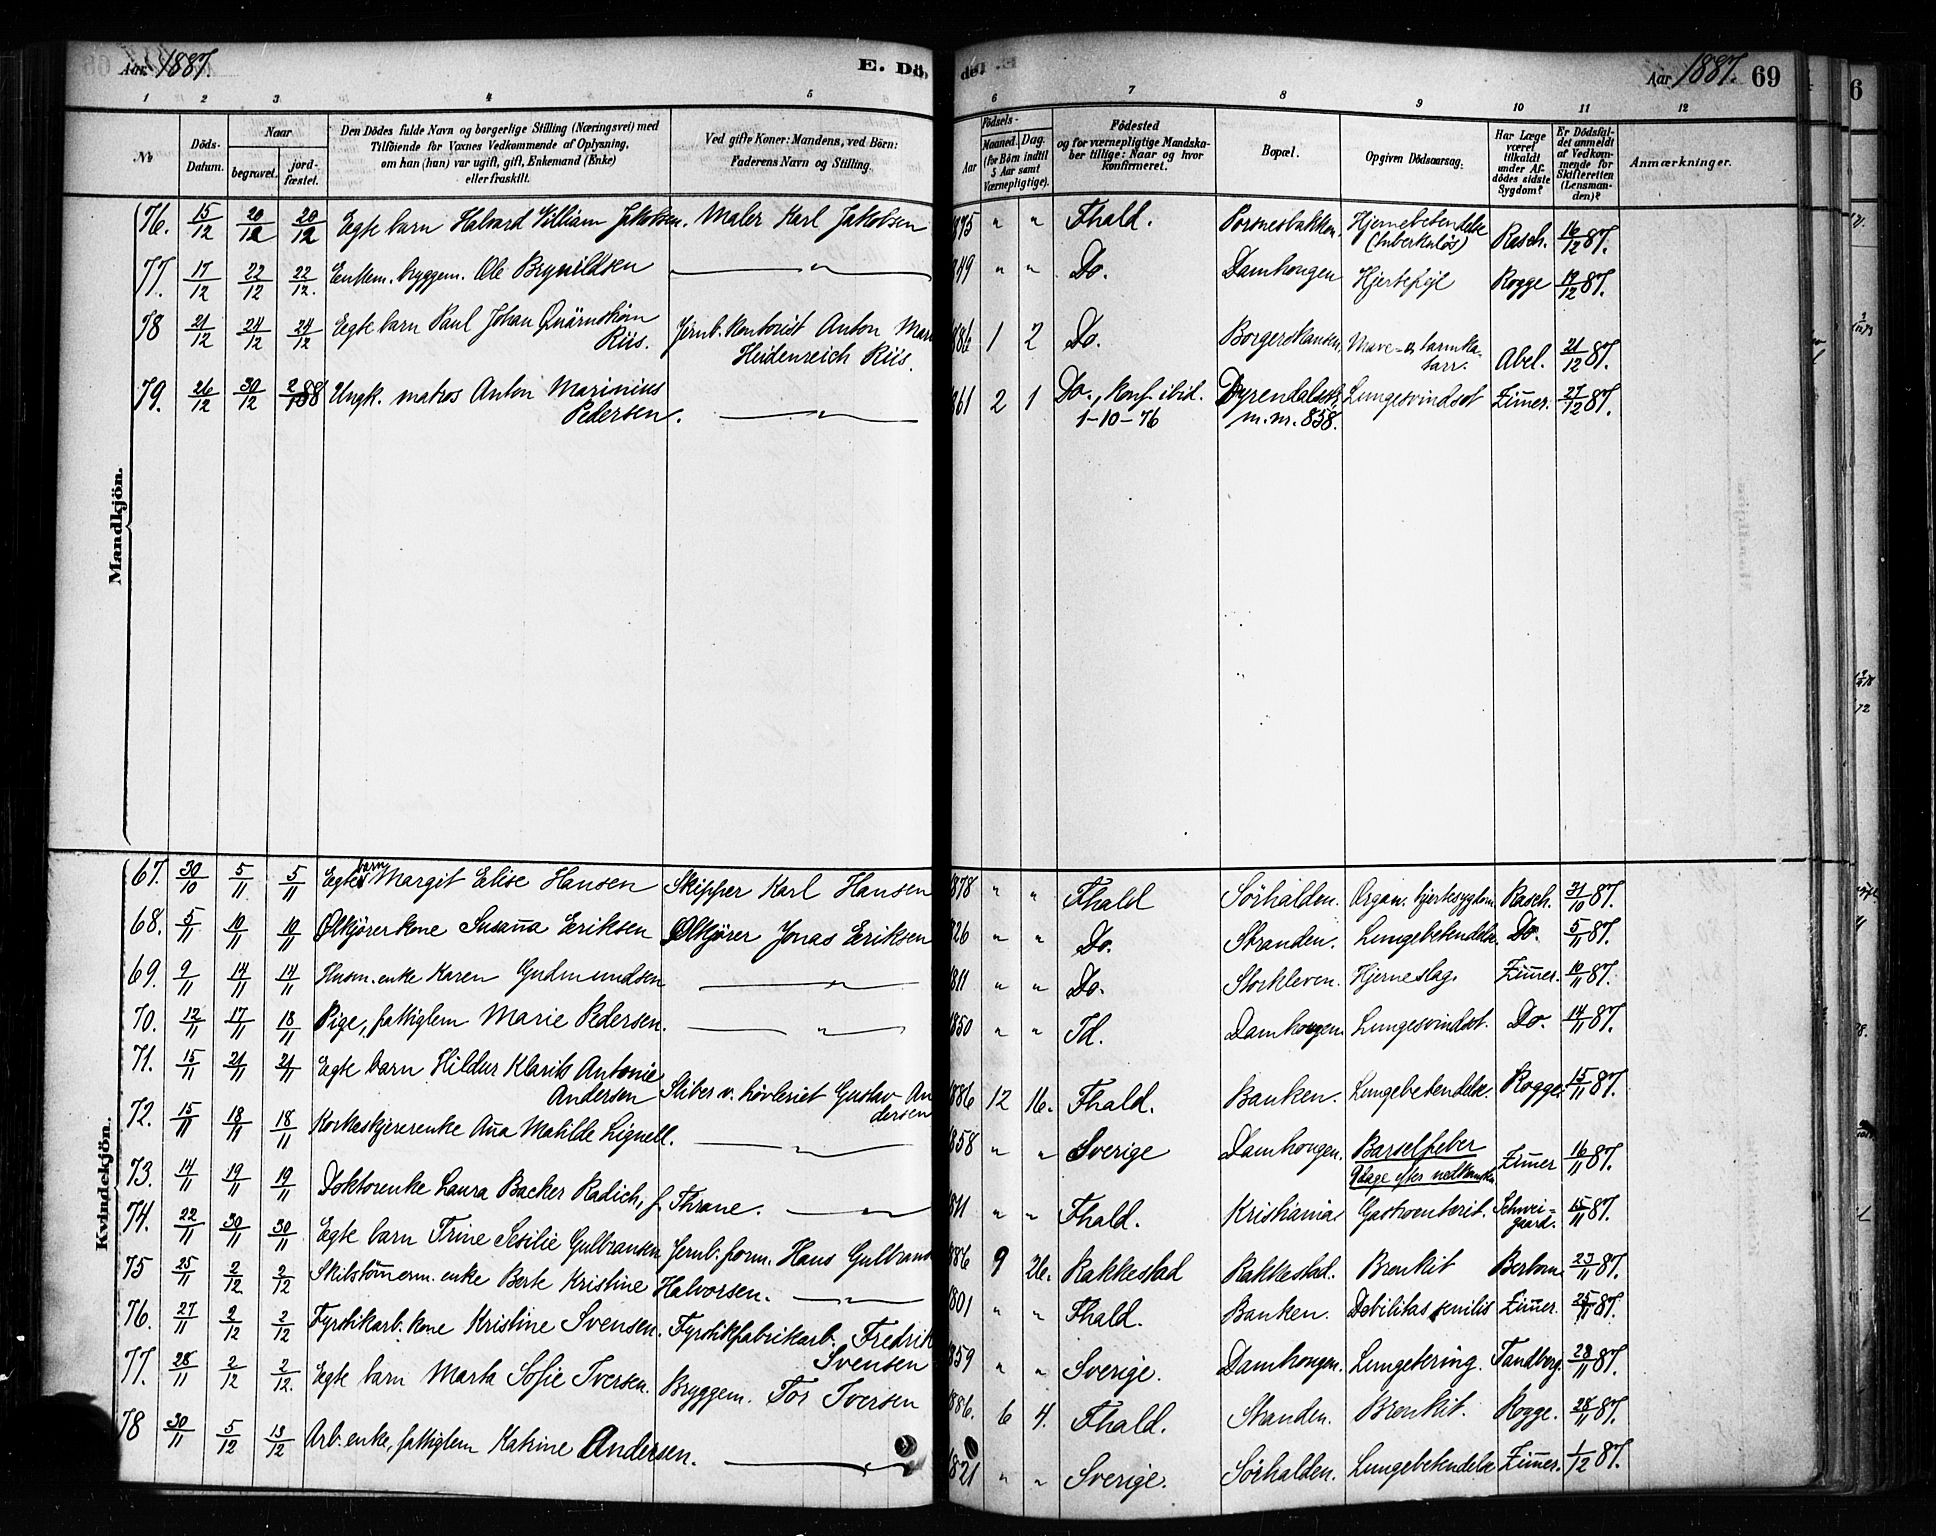 Aar 1887. E. Dö
1 2 3 4 5
No
Döds-Datum.
Naar
begravet.
jord-fæstet.
Den Dödes fulde Navn og borgerlige Stilling (Næringsvei) med
Tilföiende for Voxnes Vedkommende af Oplysning,
om han (hun) var ugift, gift, Enkemand (Enke)
eller fraskilt.
Ved gifte Koner: Mandens, ved Börn:
Faderens Navn og Stilling.
de. Aar 1887. 69
6 7 8 9 10 11 12
Födsels-
Aar
Maaned. Dag.
(for Börn indtil
5 Aar samt
Værnepligtige).
Födested
og for værnepligtige Mandska-
ber tillige: Naar og hvor
konfirmeret.
Bopæl.
Opgiven Dödsaarsag.
Har Læge
været
tilkaldt
under Af-
dödes sidste
Sygdom?
Er Dödsfal-
det anmeldt
af Vedkom-
mende for
Skifteretten
(Lensman-
den)?
Anmærkninger.
Mandkjön.
76. 15/12 20/12 20/12 Egte barn Halvard William Jakobsen. Maler Karl Jakobsen 1875 " " Fhald. Hjernebetendelse (tuberkuløs) Rasch. 16/12 87.
77. 17/12 22/12 22/12. Enkem. bryggem. Ole Brynildsen — " — 849 " " Do. Damhougen Hjertefejl Rogge 19/12 87.
78 21/12 24/12 24/12 Egte barn Paul Johan Quärnström Riis. Jernb. kontorist Anton Mari Heidenreich Riis. 886 1 2 Do. Borgerskansen Mave- & tarmka-tarr. Abel. 21/12 87.
79. 26/12 30/12 2/1 88 Ungk. matros Anton Marinius Pedersen. — " — 861 2 1 Do., Konf. ibid. 1-10-76 Dyrendalsstr. m. nr. 858. Lungesvindsot Zim̄er. 27/12 87.
Kvindekjön.
67. 30/10 5/11 5/11 Egte barn Margit Elise Hansen Skipper Karl Hansen 1878 " " Fhald Sörhalden. Organ. hjertesygdom Rasch. 31/10 87.
68. 5/11 10/11 10/11 Ølkjörerkone Susan̄a Eriksen Ølkjörer Jonas Eriksen 826 " " Do. Stranden. Lungebetendelse Do. 5/11 87.
69. 9/11 14/11 14/11 Husm. enke Karen Gudmundsen — " — 1811 " " Do. Storkleven. Hjerneslag. Zim̄er. 10/11 87.
70. 12/11 17/11 18/11 Pige, fattiglem Marie Pedersen. — " — 1850 " " Id. Damhougen Lungesvindsot. Do. 14/11 87.
71. 15/11 21/11 21/11 Egte barn Hildur Klarits Antonie Andersen Skiver v. høvleriet Gustav An dersen 1886 12 16. Fhald. Banken. Lungebetendelse. Rogge 15/11 87.
72. 15/11 18/11 18/11 Korkeskjererenke An̄a Matilde Lignell. — " — 1858 " " Sverige Damhougen. Barselfeber 9 dage efter nedkomsten Zim̄er 16/11 87.
73. 14/11 19/11 19/11 Doktorenke Laura Backer Radich, f. Thrane. — " — 1811 " " Fhald. Kristiania Gastroenterit. Schwei-gaard. 15/11 87.
74. 22/11 30/11 30/11 Egte barn Trine Sesilie Gulbransen Jernb. form. Hans Gulbrans 1886 9 26. Rakkestad Rakkestad. Bronkit Berbom 23/11 87.
75 25/11 2/12 2/12 Skibstöm̄erm. enke Berte Kristine Halvorsen. — " — 1801 " " Fhald. Banken. Debilitas senilis Zim̄er. 25/11 87.
76. 27/11 2/12 2/12 Fyrstikarb. kone Kristine Svensen. Fyrstikfabrikarb. Fredrik Svensen 1859 " " Sverige. Damhougen. Lungetering. Tandberg. 28/11 87.
77. 28/11 2/12 2/12. Egte barn Marta Sofie Iversen. Bryggem. Tor Iversen 1886. 6 4. Fhald. Stranden. Bronkit. Rogge. 28/11 87.
78 30/11 5/12 13/12 Arb. enke, fattiglem Katrine Andersen. — " — 1821 " " Sverige. Sörhalden. Lungebetendelse Zim̄er. 1/12 87.